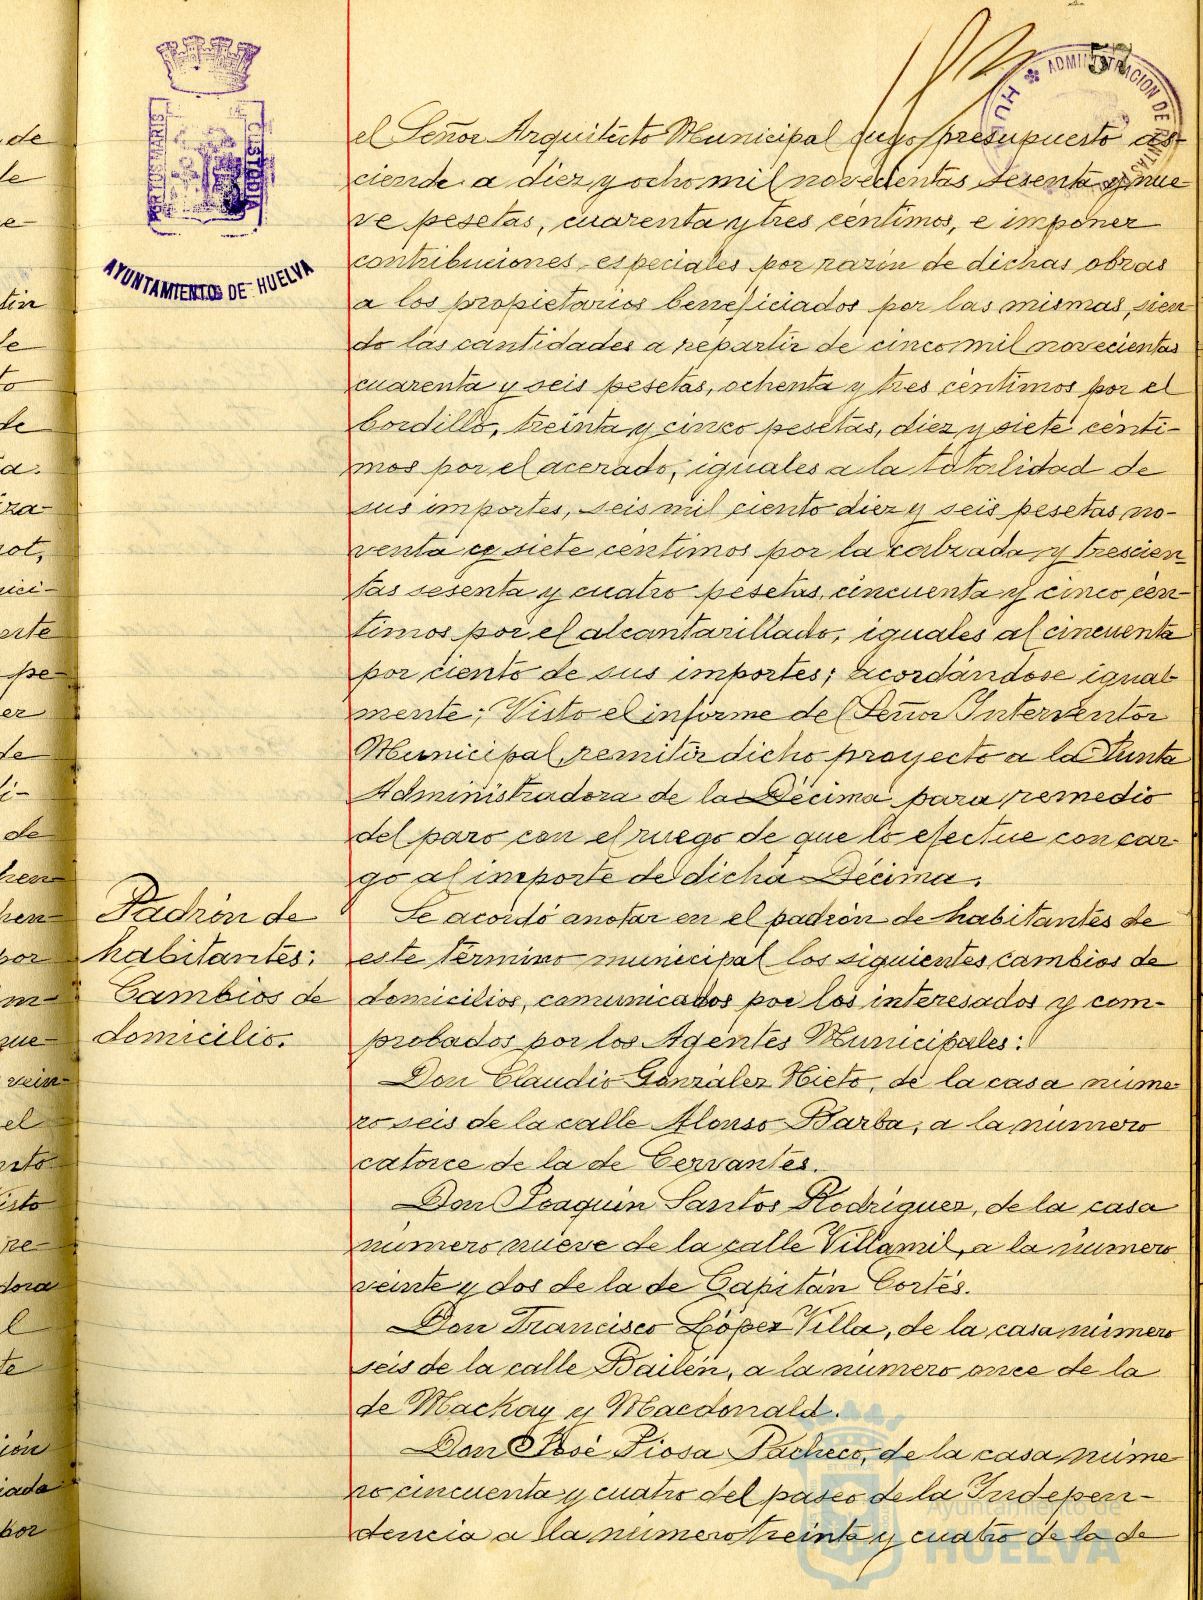 57
ADMINISTRACION DE
HU
PORTUS MARIS
CUSTODIA
AYUNTAMIENTO DE HUELVA
el Señor Arquitecto Municipal cuyo presupuesto as-
ciende a diez y ocho mil novecientas sesenta y nue
ve pesetas, cuarenta y tres centimos, e imponer
contribuciones especiales por razón de dichas obras
a los propietarios beneficiados por las mismas, sien-
do las cantidades a repartir de cinco mil novecientas
cuarenta y seis pesetas, ochenta y tres céntimos por el
bordillo, treinta y cinco pesetas, diez y siete cénti-
mos por el acerado, iguales a la totalidad de
sus importes, seis mil ciento diez y seis pesetas no-
venta y siete céntimos por la calzada y trescien-
tas sesenta y cuatro pesetas, cincuenta y cinco cén-
timos por el alcantarillado, iguales al cincuenta
por ciento de sus importes; acordándose igual-
mente; Visto el informe del Señor Interventor
Municipal, remitir dicho proyecto a la Junta
Administradora de la Décima para remedio
del paro con el ruego de que lo efectue con car-
go al importe de dicha Décima.
Padrón de
habitantes:
Cambios de
domicilio.
Se acordó anotar en el padrón de habitantes de
este término municipal los siguientes cambios de
domicilios, comunicados por los interesados y com-
probados por los Agentes Municipales:
Don Claudio González Nieto, de la casa núme-
ro seis de la calle Alonso Barba, a la número
catorce de la de Cervantes.
Don Joaquín Santos Rodríguez, de la casa
número nueve de la calle Villamil, a la número
veinte y dos de la de Capitán Cortés.
Don Francisco López Villa, de la casa número
seis de la calle Bailén, a la número once de la
de Mackay y Macdonald.
Don José Piosa Pacheco, de la casa núme
ro cincuenta y cuatro del paseo de la Indepen-
dencia a la número treinta y cuatro de la de
Ayuntamiento de
HUELVA